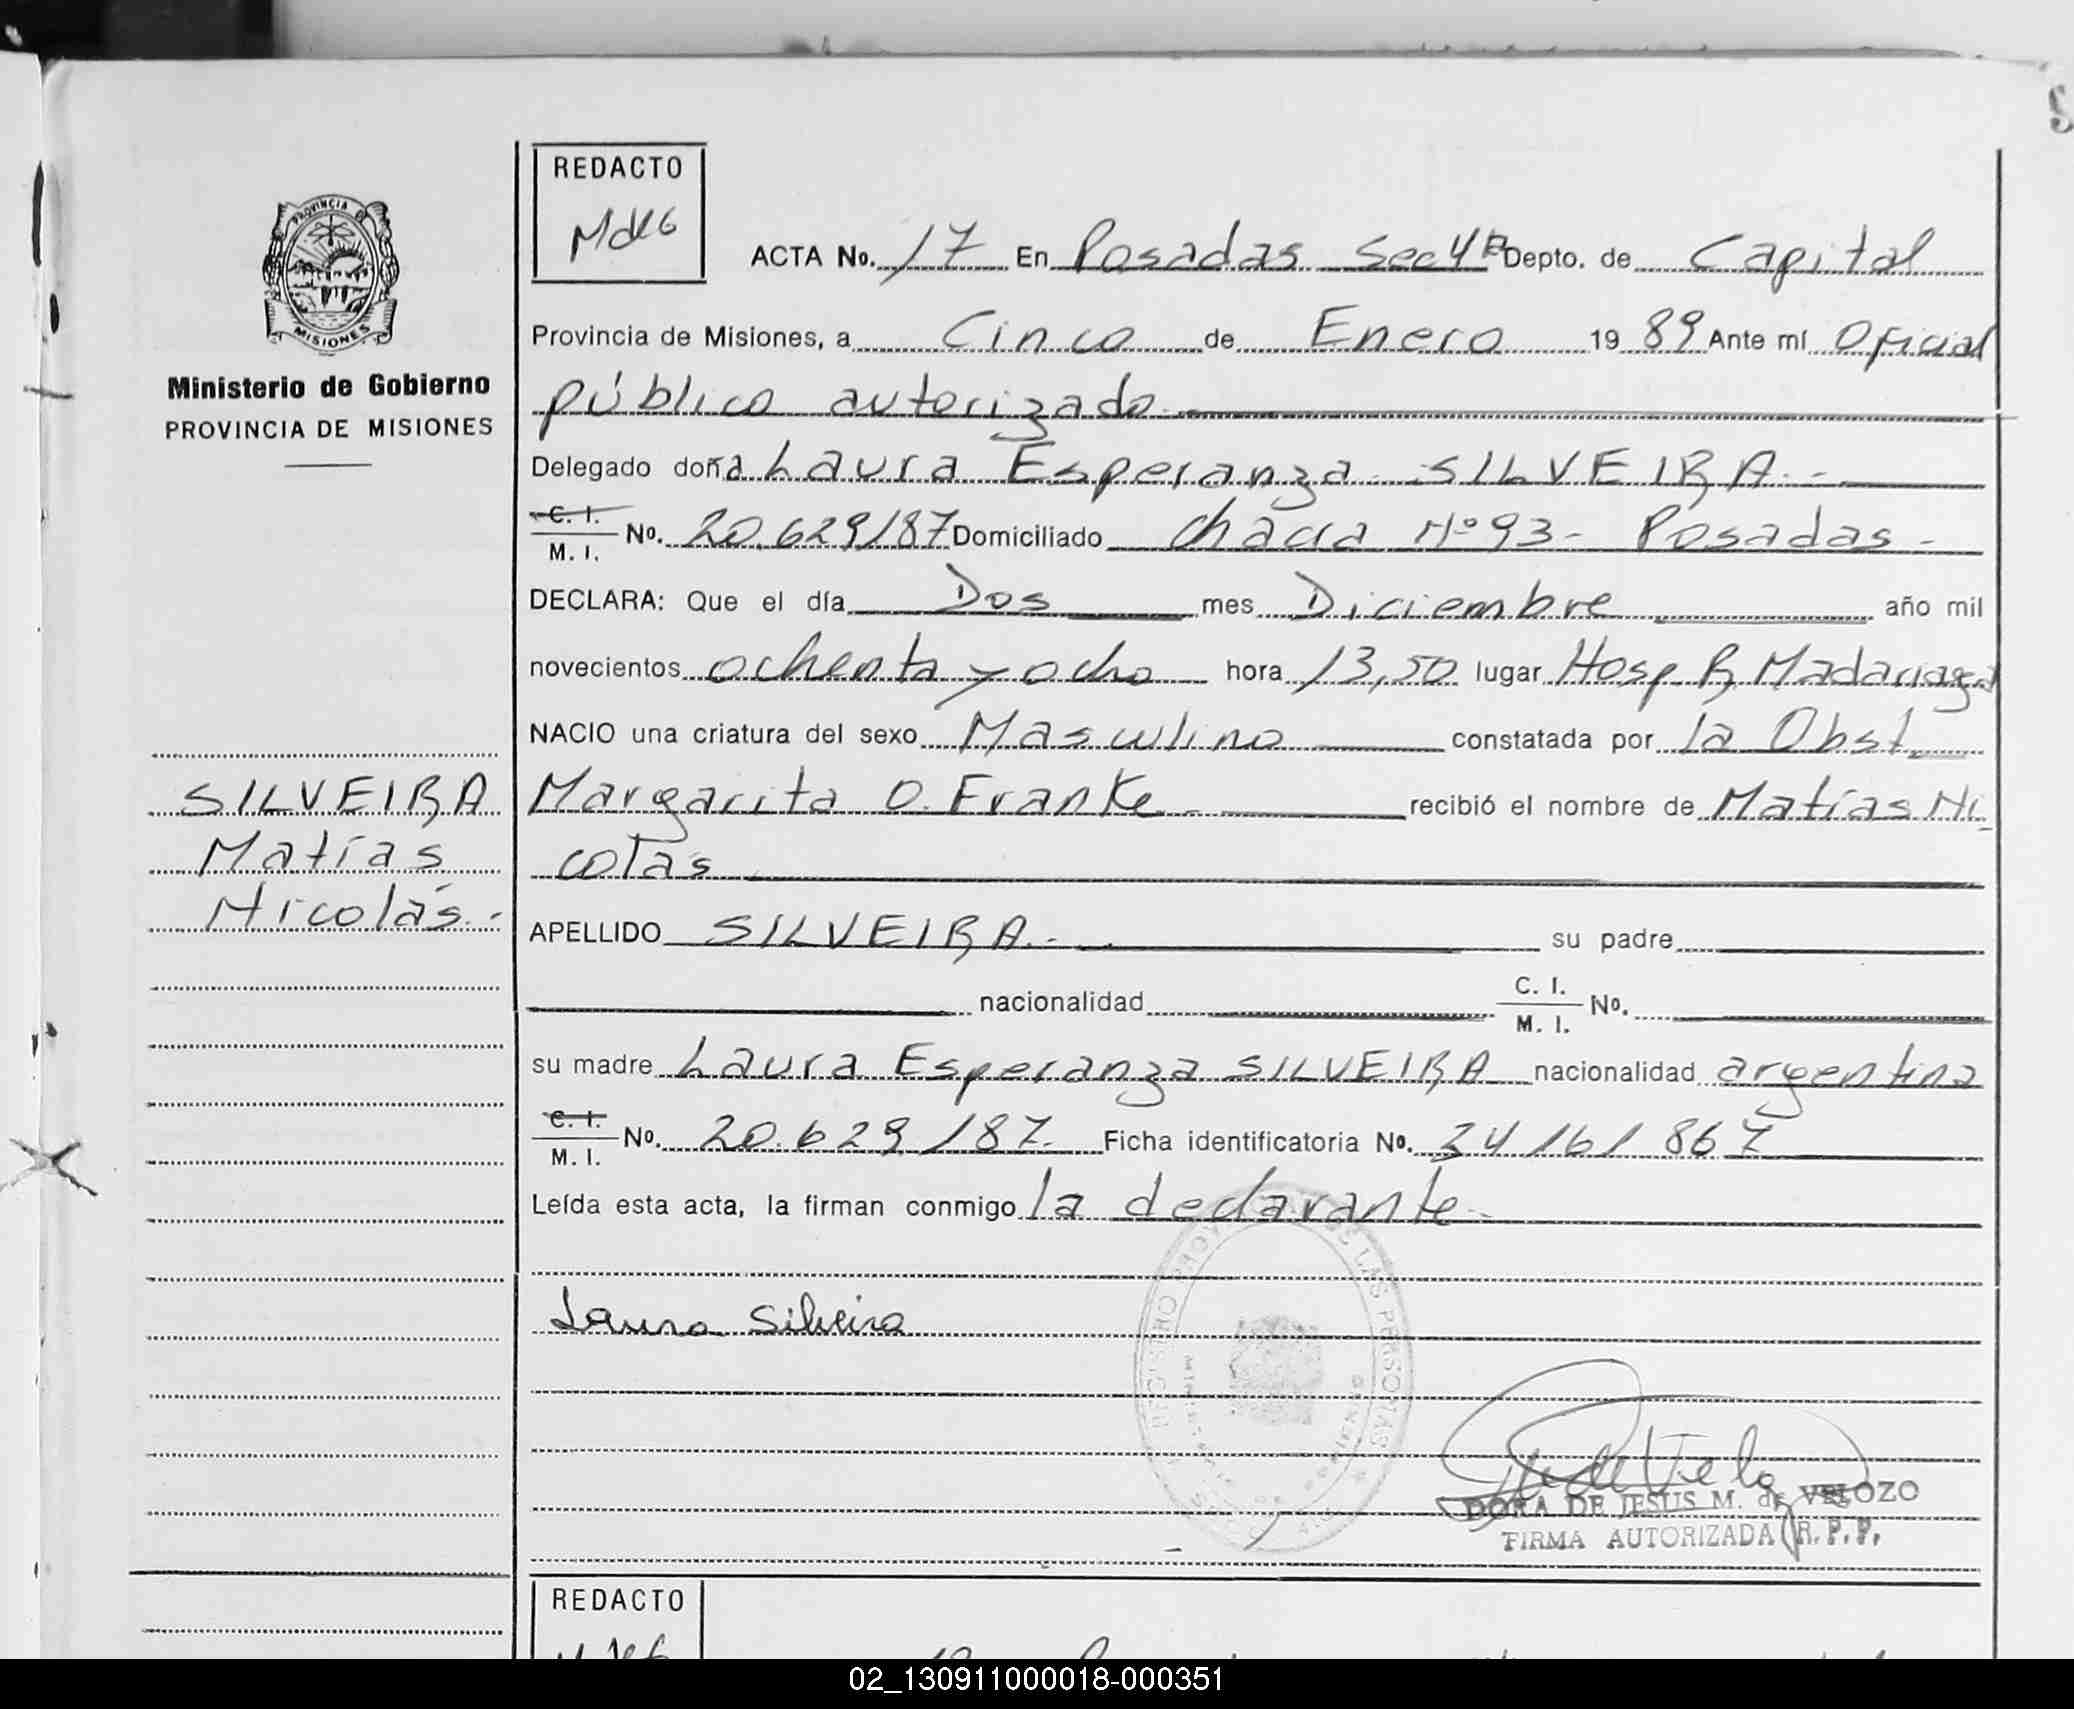 REDACTO
MdeG
PROVINCIA DE
MISIONES
Ministerio de Gobierno
PROVINCIA DE MISIONES
ACTA No. 17 En Posadas Sec 4ª Depto. de Capital
Provincia de Misiones, a Cinco de Enero 1989 Ante mí Oficial
público autorizado
Delegado doña Laura Esperanza SILVEIRA.-
C. I. M. I. No. 20.629187 Domiciliado Chacra Nº 93- Posadas-
DECLARA: Que el día Dos mes Diciembre año mil
novecientos ochenta y ocho hora 13,50 lugar Hosp R, Madariaga
NACIO una criatura del sexo Masculino constatada por la Obst.
Margarita O. Franke recibió el nombre de Matías Ni
colás
SILVEIRA
Matías
Nicolás.-
APELLIDO SILVEIRA.- su padre
nacionalidad C. I. M. I. No.
su madre Laura Esperanza SILVEIRA nacionalidad argentina
C. I. M. I. No. 20.629187. Ficha identificatoria No. 34161867
Leída esta acta, la firman conmigo la declarante-
Laura Silveira
REGISTRO PROV DE LAS PERSONAS
DORA DE JESUS M. de VELOZO
FIRMA AUTORIZADA R. P. P.
REDACTO
02_130911000018-000351